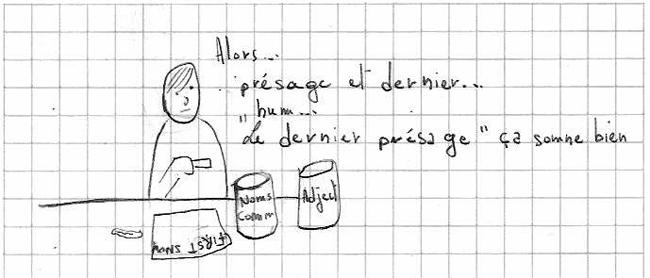 Alors...
présage et dernier...
"hum...
Le dernier présage" ça somne bien
Noms
Comm
Adject
FIRST SNOW